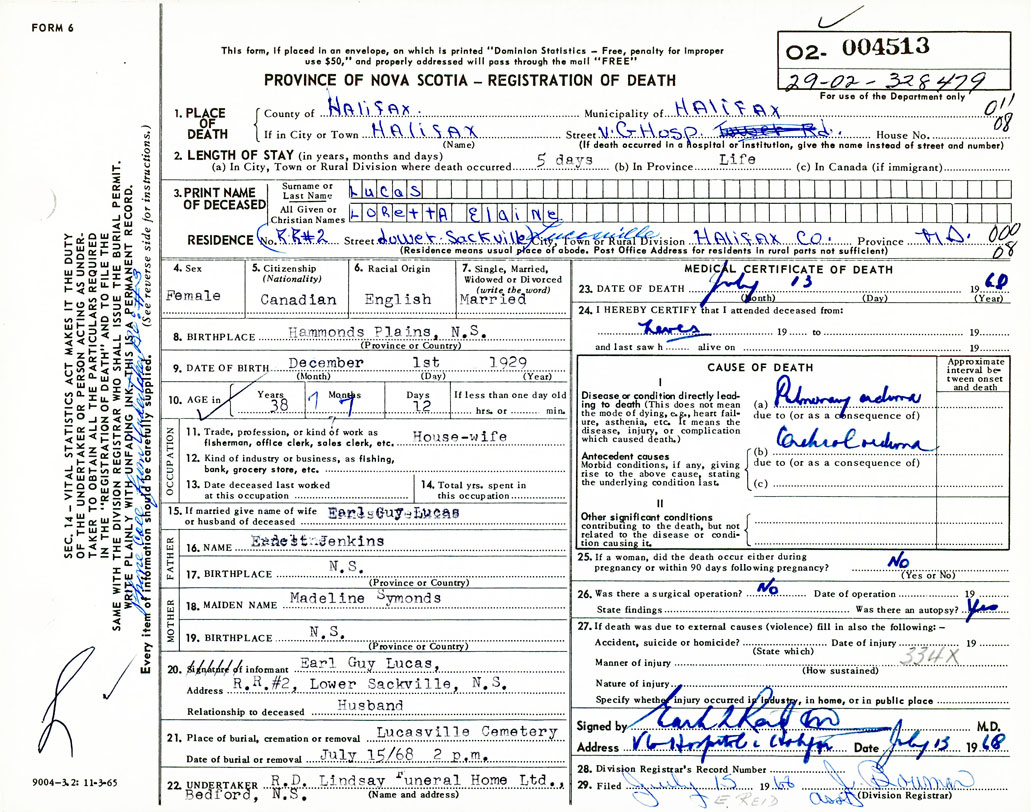 FORM 6
This form, if placed in an envelope, on which is printed "Dominion Statistics – Free, penalty for improper
use $50," and properly addressed will pass through the mail "FREE"
PROVINCE OF NOVA SCOTIA – REGISTRATION OF DEATH
02- 004513
29-02-328479
For use of the Department only
SEC. 14 – VITAL STATISTICS ACT MAKES IT THE DUTY
OF THE UNDERTAKER OR PERSON ACTING AS UNDER-
TAKER TO OBTAIN ALL THE PARTICULARS REQUIRED
IN THE "REGISTRATION OF DEATH" AND TO FILE THE
SAME WITH THE DIVISION REGISTRAR WHO SHALL ISSUE THE BURIAL PERMIT.
WRITE PLAINLY WITH UNFADING INK – THIS IS A PERMANENT RECORD.
Every item of information should be carefully supplied. (See reverse side for instructions.)
1. PLACE OF DEATH
County of HALIFAX. Municipality of HALIFAX 011
If in City or Town HALIFAX Street V.G Hosp. Rd. House No. 08
(Name) (If death occurred in a hospital or institution, give the name instead of street and number)
2. LENGTH OF STAY (in years, months and days)
(a) In City, Town or Rural Division where death occurred 5 days (b) In Province Life (c) In Canada (if immigrant)
3. PRINT NAME OF DECEASED
Surname or Last Name LUCAS
All Given or Christian Names LORETTA ELAINE
RESIDENCE No. RR#2 Street Lower Sackville Lucasville City, Town or Rural Division HALIFAX Co. Province 000
(Residence means usual place of abode. Post Office Address for residents in rural parts not sufficient) 08
4. Sex Female
5. Citizenship (Nationality) Canadian
6. Racial Origin English
7. Single, Married, Widowed or Divorced (write the word) Married
8. BIRTHPLACE Hammonds Plains, N.S.
(Province or Country)
9. DATE OF BIRTH December 1st 1929
(Month) (Day) (Year)
10. AGE in Years 38 Months 7 Days 12 If less than one day old hrs. or min.
OCCUPATION
11. Trade, profession, or kind of work as fisherman, office clerk, sales clerk, etc. House-wife
12. Kind of industry or business, as fishing, bank, grocery store, etc.
13. Date deceased last worked at this occupation
14. Total yrs. spent in this occupation
15. If married give name of wife or husband of deceased Earl Guy Lucas
FATHER
16. NAME Jenkins
17. BIRTHPLACE N.S.
(Province or Country)
MOTHER
18. MAIDEN NAME Madeline Symonds
19. BIRTHPLACE N.S.
(Province or Country)
20. Signature of informant Earl Guy Lucas,
Address R.R.#2, Lower Sackville, N.S.
Relationship to deceased Husband
21. Place of burial, cremation or removal Lucasville Cemetery
Date of burial or removal July 15/68 2 p.m.
22. UNDERTAKER R.D. Lindsay Funeral Home Ltd.,
Bedford, N.S. (Name and address)
MEDICAL CERTIFICATE OF DEATH
23. DATE OF DEATH July 13 1968
(Month) (Day) (Year)
24. I HEREBY CERTIFY that I attended deceased from:
19 to 19
and last saw h alive on 19
CAUSE OF DEATH
Approximate interval between onset and death
I
Disease or condition directly leading to death (This does not mean the mode of dying, e.g., heart failure, asthenia, etc. It means the disease, injury, or complication which caused death.)
(a) Pulmonary edema
due to (or as a consequence of)
Cerebral edema
Antecedent causes
Morbid conditions, if any, giving rise to the above cause, stating the underlying condition last.
(b)
due to (or as a consequence of)
(c)
II
Other significant conditions contributing to the death, but not related to the disease or condition causing it.
25. If a woman, did the death occur either during pregnancy or within 90 days following pregnancy? No
(Yes or No)
26. Was there a surgical operation? No Date of operation 19
State findings Was there an autopsy? Yes
27. If death was due to external causes (violence) fill in also the following: –
Accident, suicide or homicide? Date of injury 19
(State which) 334X
Manner of injury
(How sustained)
Nature of injury
Specify whether injury occurred in industry, in home, or in public place
Signed by M.D.
Address Date July 13 1968
28. Division Registrar's Record Number
29. Filed July 15 1968 J. Bowman
(Division Registrar)
E. REID
9004-3.2: 11-3-65